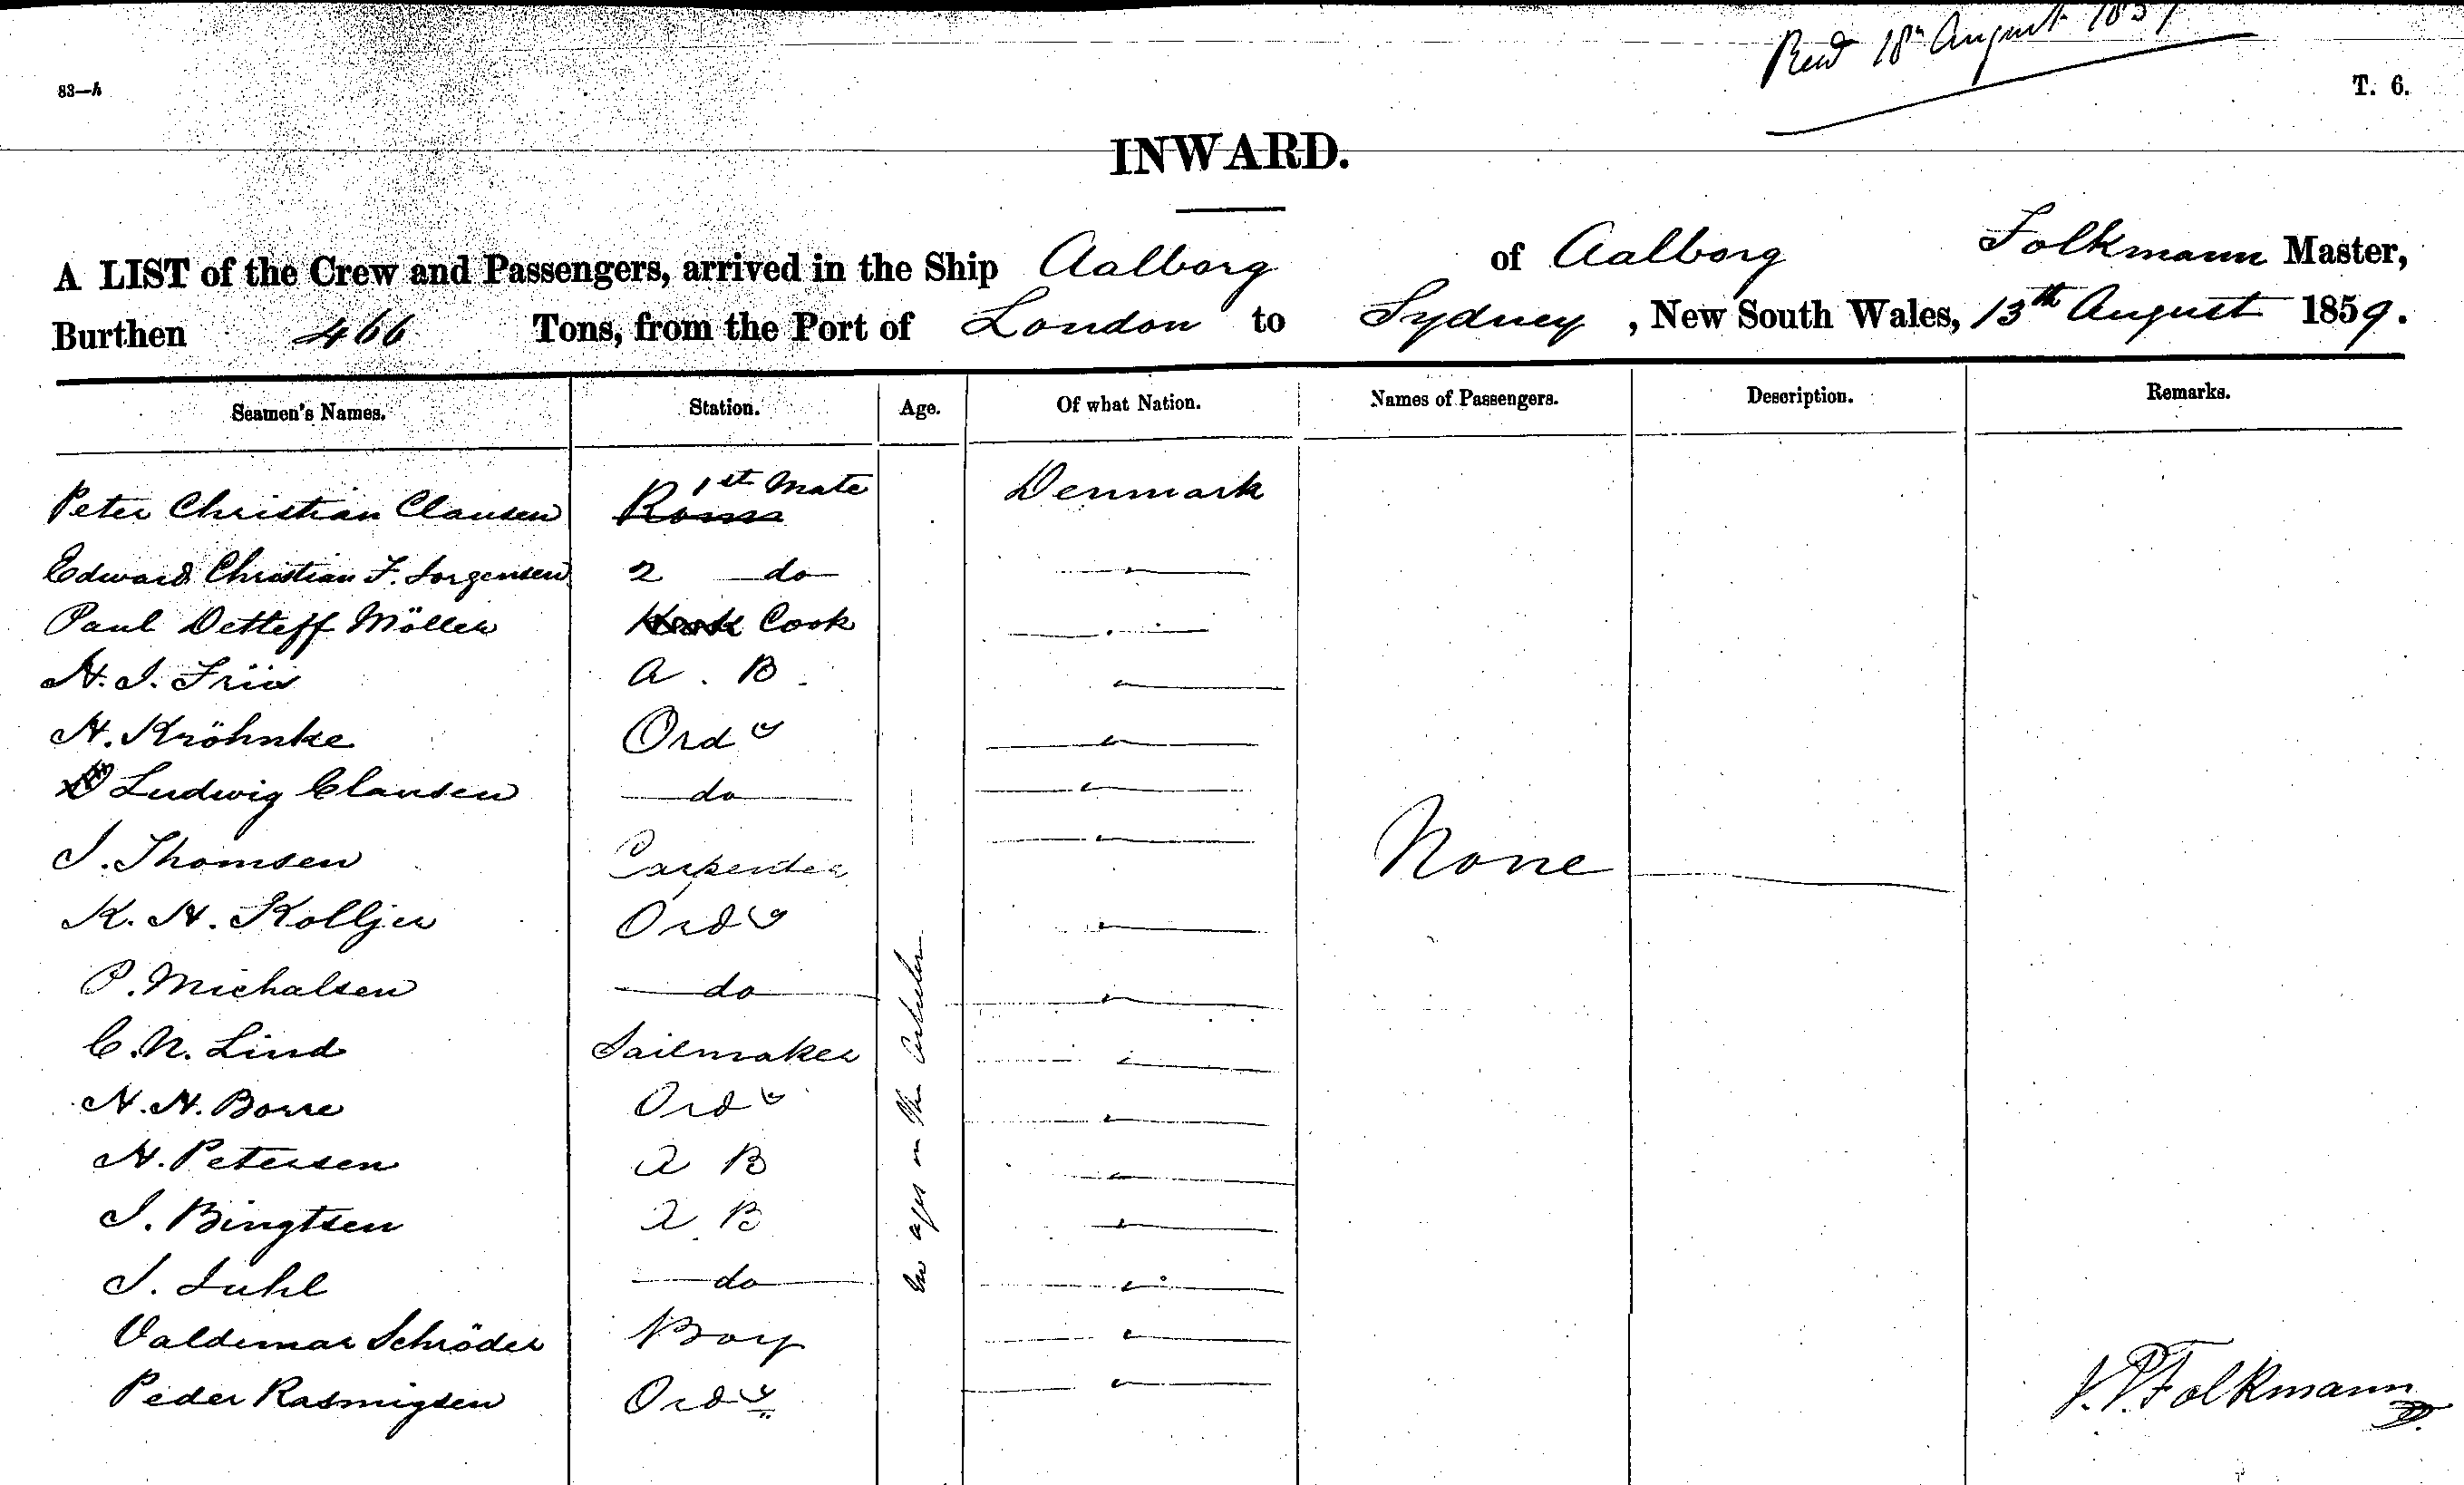 Recd 18th August 1859
83—h
T. 6.
INWARD.
A LIST of the Crew and Passengers, arrived in the Ship Aalborg of Aalborg Folkmann Master,
Burthen 466 Tons, from the Port of London to Sydney, New South Wales, 13th August 1859.
Seamen's Names. Station. Age. Of what Nation. Names of Passengers. Description. Remarks.
Peter Christian Clausen 1st Mate Denmark
Edward Christian F. Jorgensen 2 do
Paul Detleff Möller Cook
H. J. Friis A. B.
H. Kröhnke Ordy
Ludwig Clausen do
J. Thomsen Carpenter None
K. H. Kolljer Ordy
P. Michalsen do
C. N. Lind Sailmaker
H. H. Borre Ordy
H. Petersen A B
J. Bingtsen A B
J. Juhl do
Valdemar Schröder Boy
Peder Rasmigsen Ordy
No ages on the Articles
J. P. Folkmann